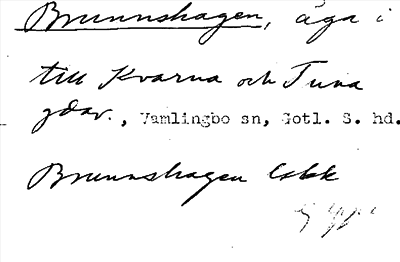 Brunnshagen, äga i
till Kvarna och Tuna
gdar., Vamlingbo sn, Gotl. S. hd.
Brunnshagen
Ej